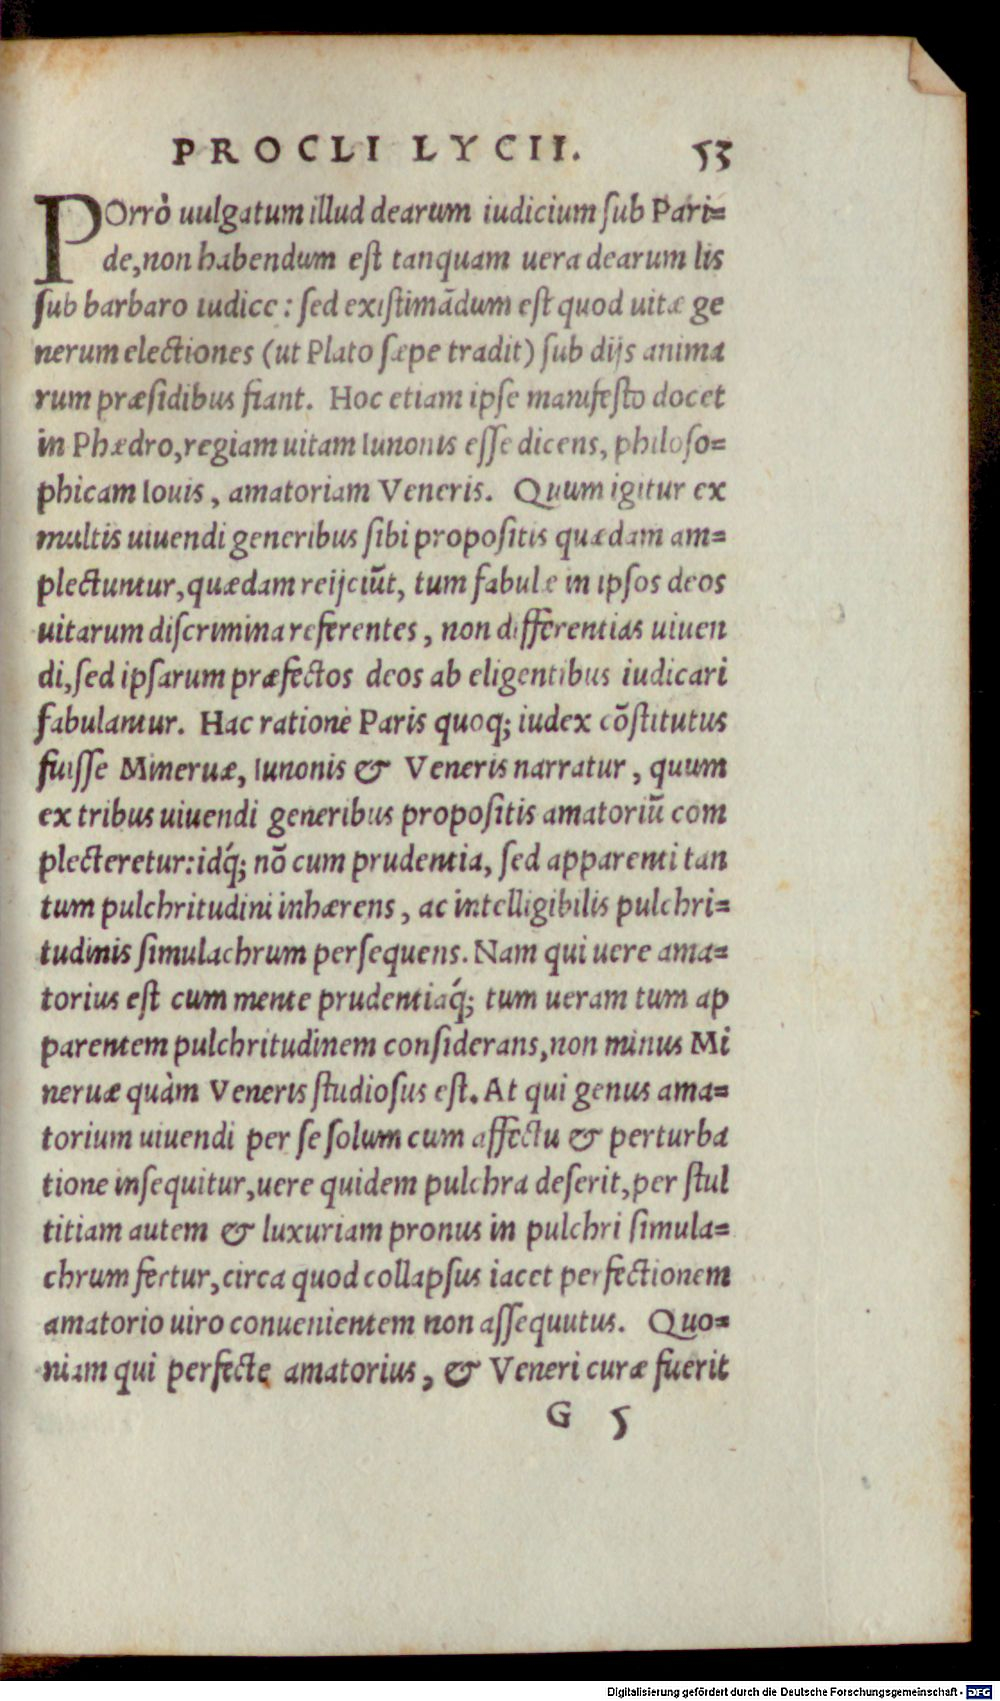 PROCLI LYCII. 53
POrrò uulgatum illud dearum iudicium sub Pari=
de,non habendum est tanquam uera dearum lis
sub barbaro iudice : sed existimãdum est quod uitæ ge
nerum electiones (ut Plato sæpe tradit) sub dijs anima
rum præsidibus fiant. Hoc etiam ipse manifesto docet
in Phædro,regiam uitam Iunonis esse dicens, philoso=
phicam Iouis , amatoriam Veneris. Quum igitur ex
multis uiuendi generibus sibi propositis quædam am=
plectuntur,quædam reijciũt, tum fabulæ in ipsos deos
uitarum discrimina referentes , non differentias uiuen
di,sed ipsarum præfectos deos ab eligentibus iudicari
fabulantur. Hac ratione Paris quoq; iudex cõstitutus
fuisse Mineruæ, Iunonis & Veneris narratur , quum
ex tribus uiuendi generibus propositis amatoriũ com
plecteretur:idq́; nõ cum prudentia, sed apparenti tan
tum pulchritudini inhærens , ac intelligibilis pulchri=
tudinis simulachrum persequens. Nam qui uere ama=
torius est cum mente prudentiaq́; tum ueram tum ap
parentem pulchritudinem considerans,non minus Mi
neruæ quàm Veneris studiosus est. At qui genus ama=
torium uiuendi per se solum cum affectu & perturba
tione insequitur,uere quidem pulchra deserit,per stul
titiam autem & luxuriam pronus in pulchri simula=
chrum fertur,circa quod collapsus iacet perfectionem
amatorio uiro conuenientem non assequutus. Quo=
niam qui perfecte amatorius , & Veneri curæ fuerit
G 5
Digitalisierung gefördert durch die Deutsche Forschungsgemeinschaft - DFG